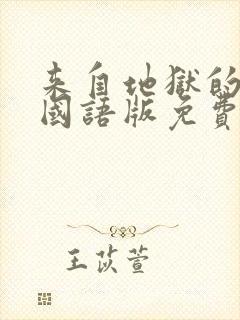 来自地獄的
國語版免費
王苡萱